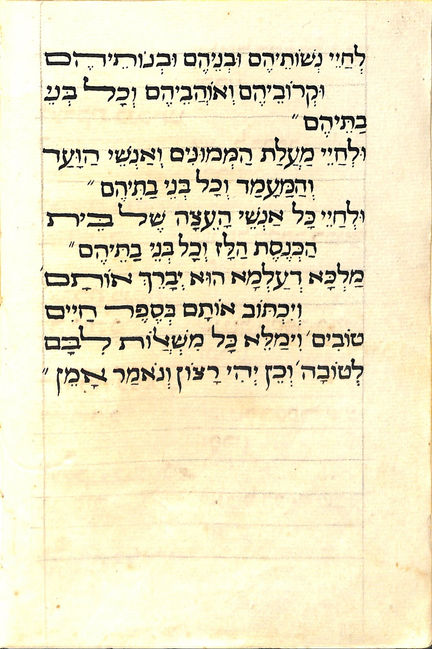 לְחַיֵּי נְשׁוֹתֵיהֶם וּבְנֵיהֶם וּבְנוֹתֵיהֶם
וּקְרוֹבֵיהֶם וְאוֹהֲבֵיהֶם וְכָל בְּנֵי
בָתֵּיהֶם״
וּלְחַיֵּי מַעֲלַת הַמְּמוּנִּים וְאַנְשֵׁי הַוַּעַד
וְהַמַּעֲמָד וְכָל בְּנֵי בָתֵּיהֶם״
וּלְחַיֵּי כָּל אַנְשֵׁי הָעֵצָה שֶׁל בֵּית
הַכְּנֶסֶת הַלָּז וְכָל בְּנֵי בָתֵּיהֶם״
מַלְכָּא דְעָלְמָא הוּא יְבָרֵךְ אוֹתָם
וְיִכְתּוֹב אוֹתָם בְּסֵפֶר חַיִּים
טוֹבִים׳ וִימַלֵּא כָּל מִשְׁאֲלוֹת לִבָּם
לְטוֹבָה׳ וְכֵן יְהִי רָצוֹן וְנֹאמַר אָמֵן״